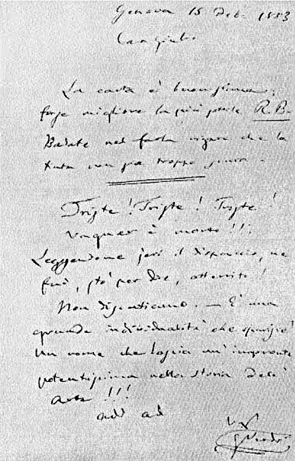 Genova 15 Feb. 1883
Car Giul.
La carta è buonissima,
forse migliore la più forte R. B.
Badate nel farla rigare che la
tinta non sia troppo scura.
Triste! Triste! Triste!
Vagner è morto!!!
Leggendone jeri il dispaccio, ne
fui, sto per dir, atterrito!
Non discutiamo. — È una
grande individualità che sparisce!
Un nome che lascia un'impronta
potentissima nella storia dell'
Arte!!!
Ad ad
G. Verdi